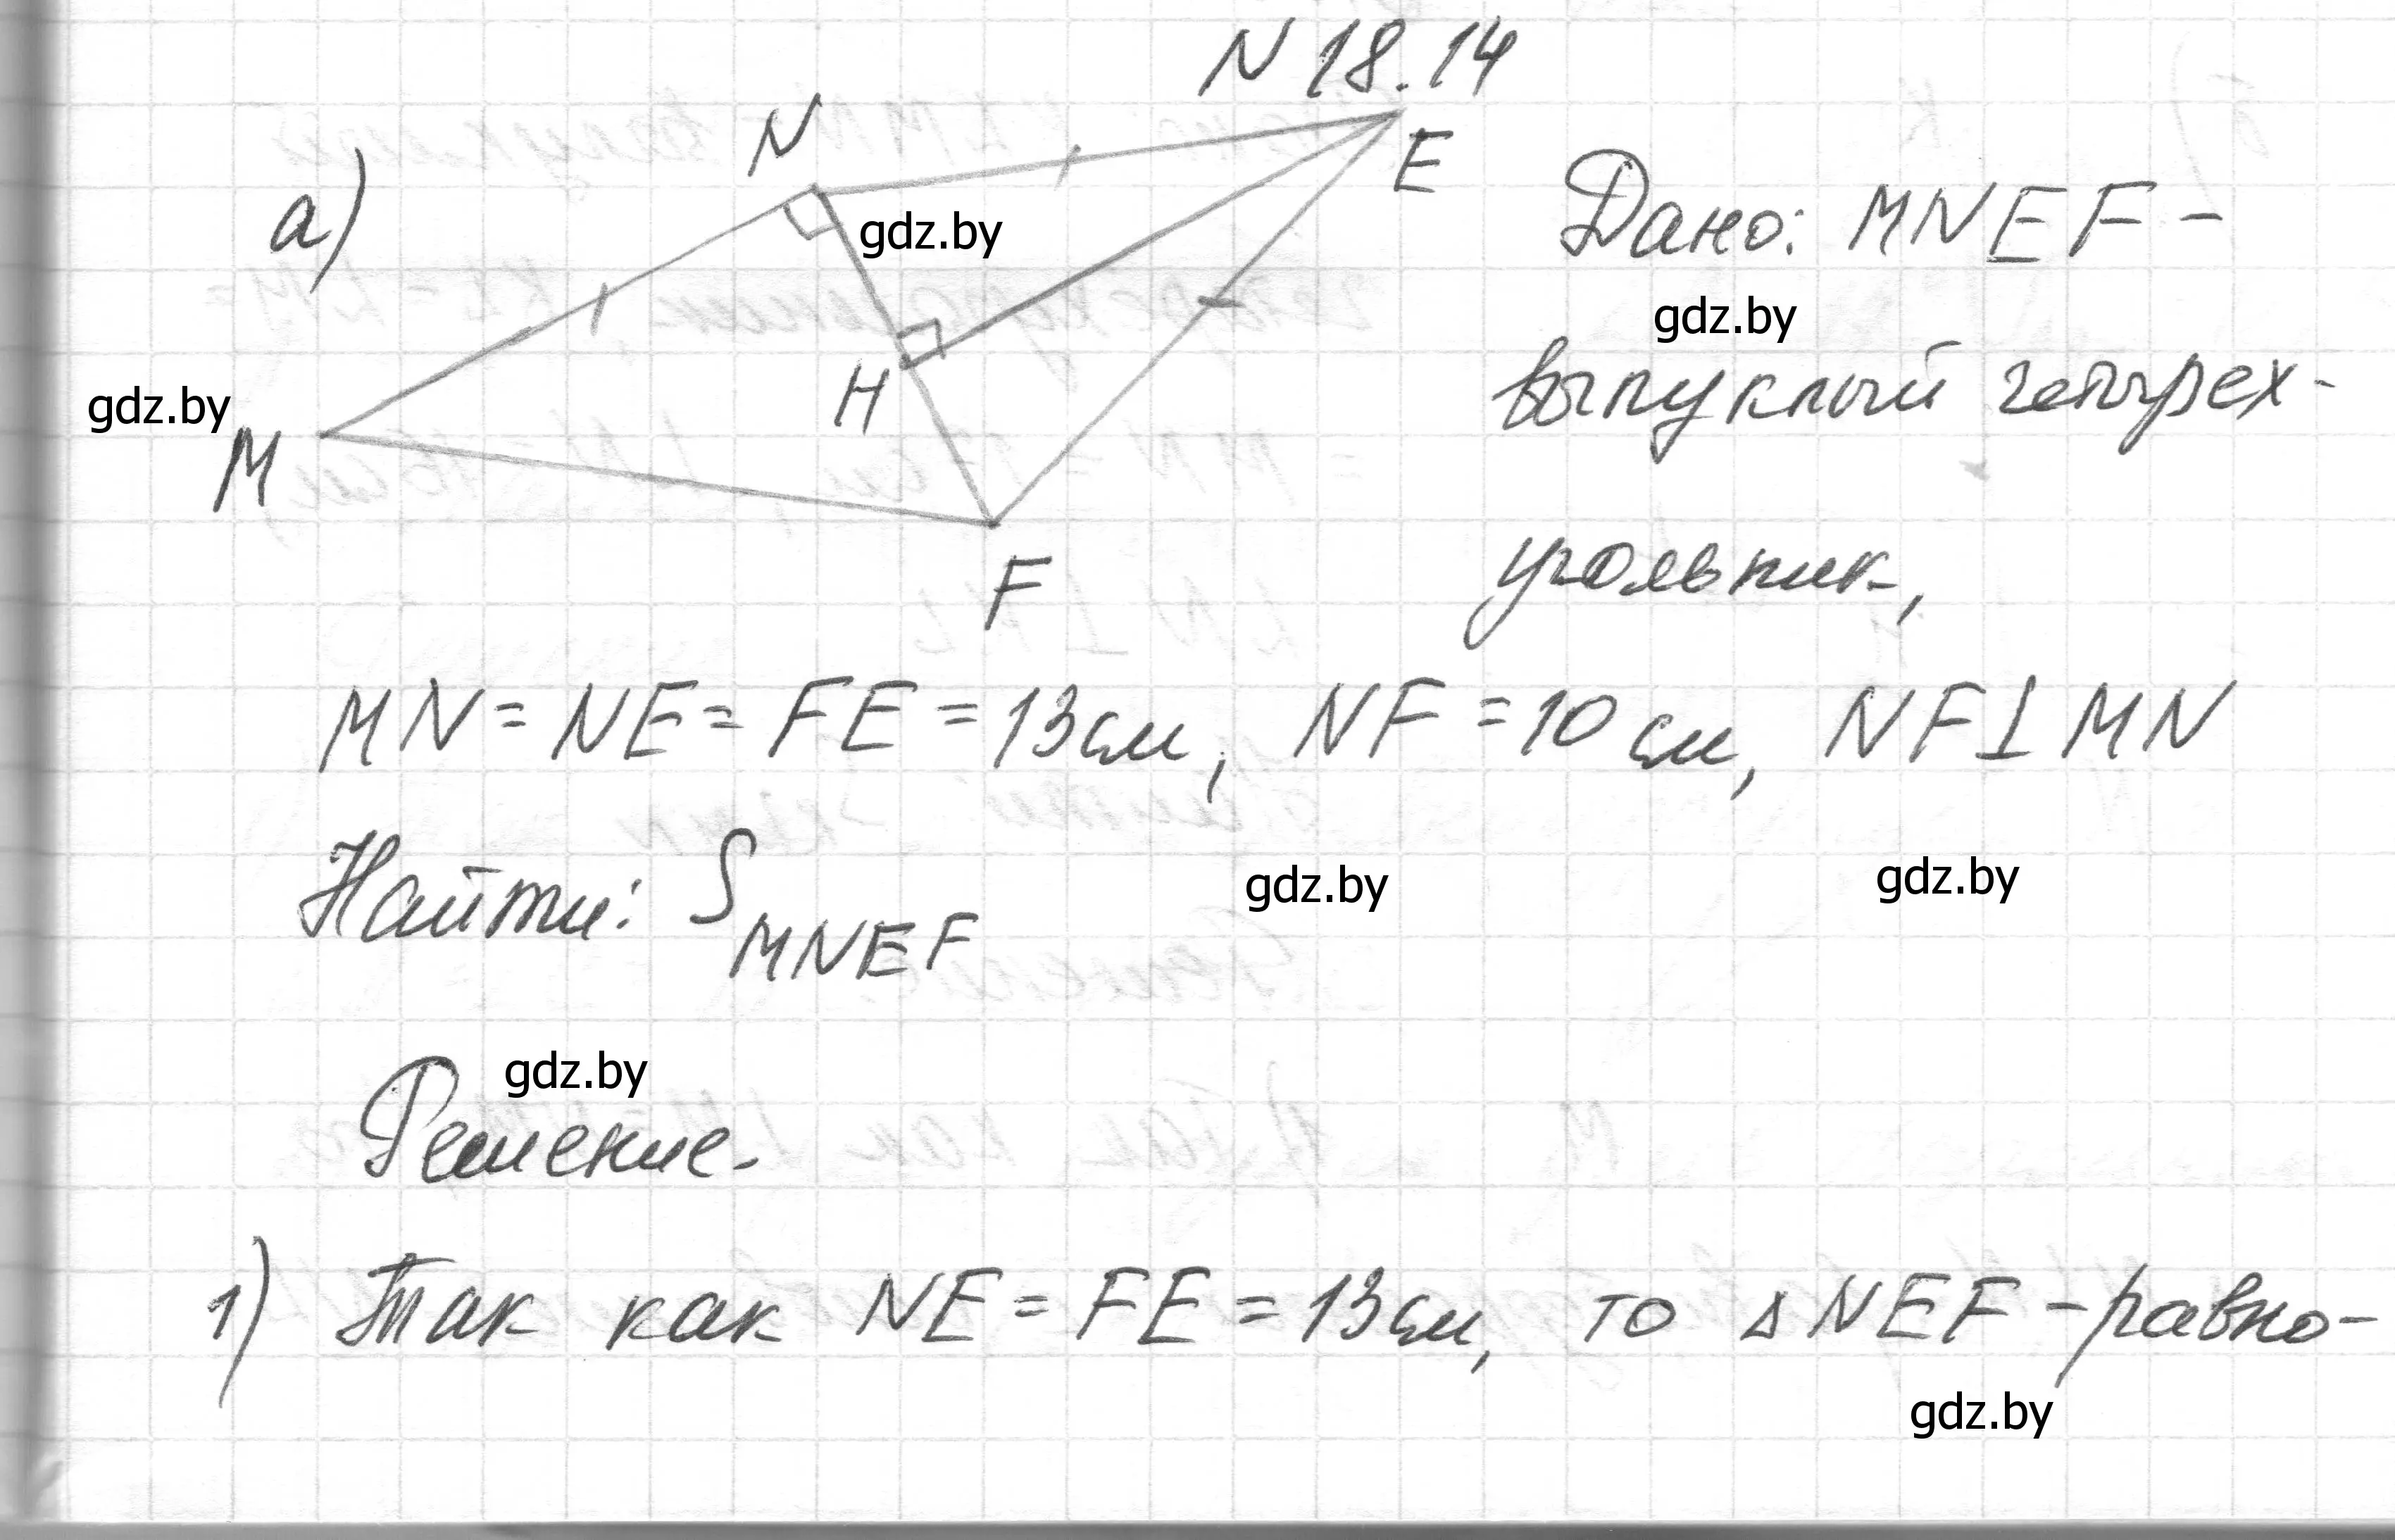 N 18.14
а)
N
E
gdz.by
H
gdz.by
M
F
Дано: MNEF -
gdz.by
выпуклый четырех-
угольник,
MN = NE = FE = 13 см, NF = 10 см, NF⊥MN
Найти: S MNEF
gdz.by
gdz.by
gdz.by
Решение.
1) Так как NE = FE = 13 см, то △NEF - равно-
gdz.by